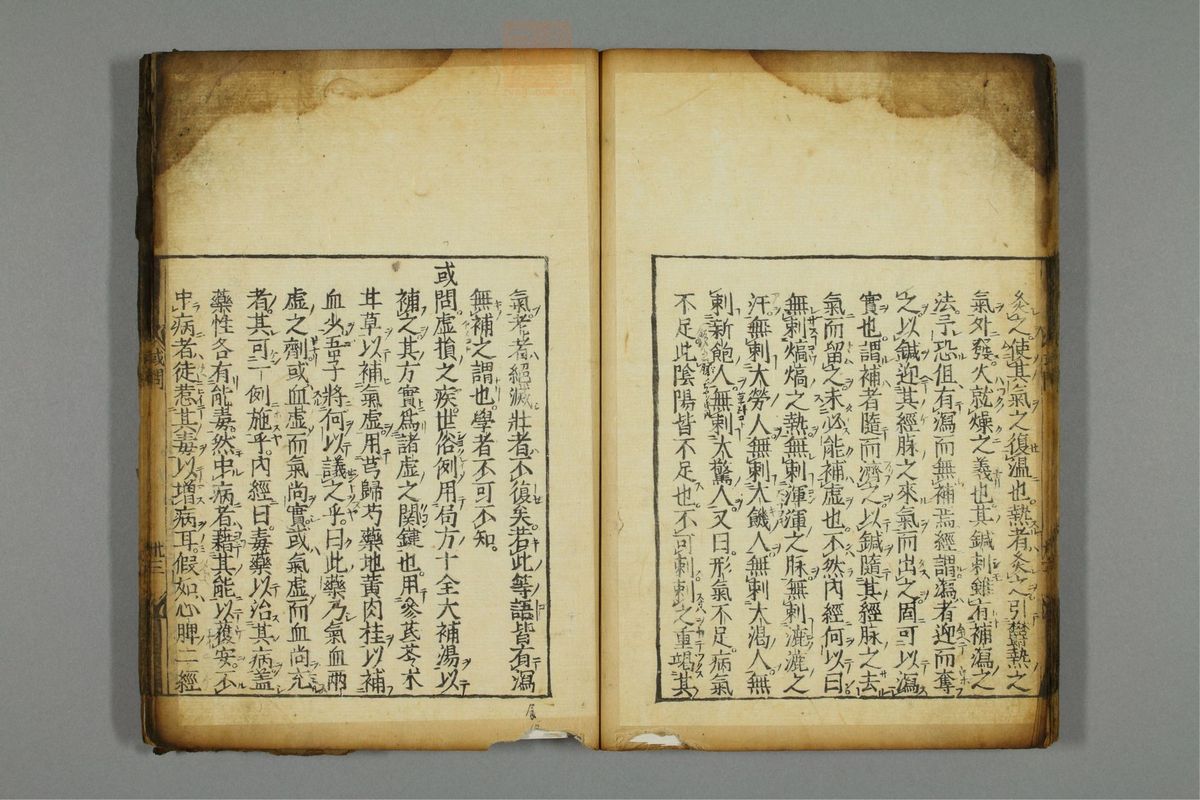 灸之使其氣之復溫也熱者灸之引欝熱之
氣外發火就燥之義也其鍼刺雖有補瀉之
法予恐但有瀉而無補焉經謂瀉者迎而奪
之以鍼迎其經脉之來氣而出之固可以瀉
實也謂補者隨而濟之以鍼隨其經脉之去
氣而留之未必能補虛也不然內經何以曰
無刺熇熇之熱無刺渾渾之脉無刺漉漉之
汗無刺大勞人無刺大饑人無刺大渴人無
刺新飽人無刺大驚人又曰形氣不足病氣
不足此陰陽皆不足也不可刺刺之重竭其
氣老者絕滅壯者不復矣若此等語皆有瀉
無補之謂也學者不可不知
或問虛損之疾世俗例用局方十全大補湯以
補之其方實爲諸虛之関鍵也用參芪苓朮
甘草以補氣虛用芎歸芍藥地黃肉桂以補
血少吾子將何以議之乎曰此藥乃氣血兩
虛之劑或血虛而氣尚實或氣虛而血尚充
者其可一例施乎內經曰毒藥以治其病蓋
藥性各有能毒然中病者藉其能以獲安不
中病者徒惹其毒以增病耳假如心脾二經
或問
廿三